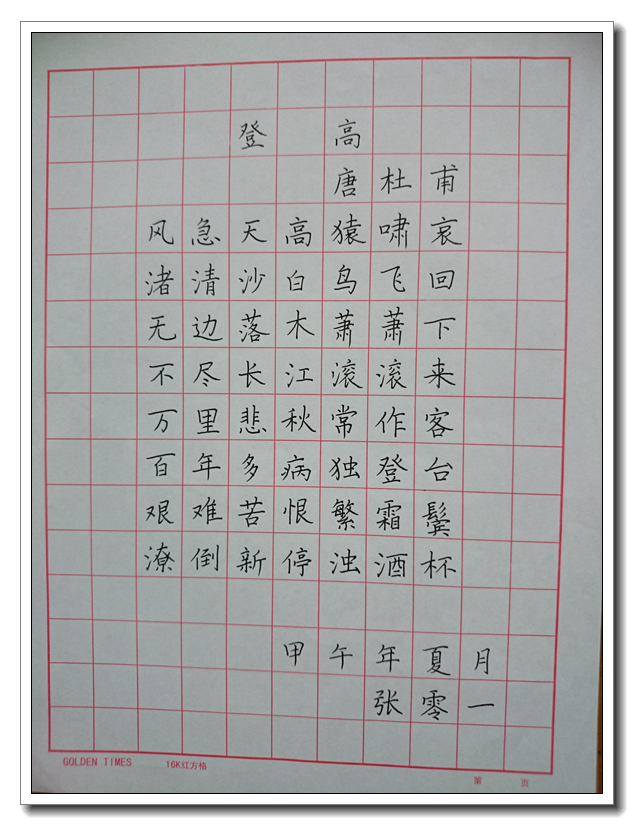 登高
唐杜甫
风急天高猿啸哀
渚清沙白鸟飞回
无边落木萧萧下
不尽长江滚滚来
万里悲秋常作客
百年多病独登台
艰难苦恨繁霜鬓
潦倒新停浊酒杯
甲午年夏月
张零一
GOLDEN TIMES 16K红方格
第 页